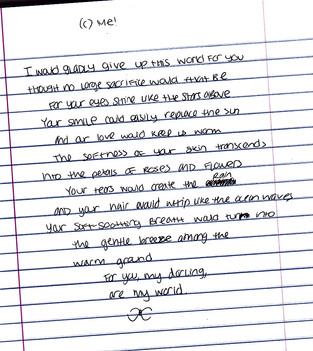 (c) Me!
I would gladly give up this world for you
though no large sacrifice would that be
For your eyes shine like the stars above
Your smile could easily replace the sun
And our love would keep us warm
The softness of your skin transcends
Into the petals of Roses and Flowers
Your tears would create the Rain
and your hair would whip like the ocean waves
Your soft-soothing Breath would turn into
the gentle breeze among the
warm ground
For you, my darling,
are my world.